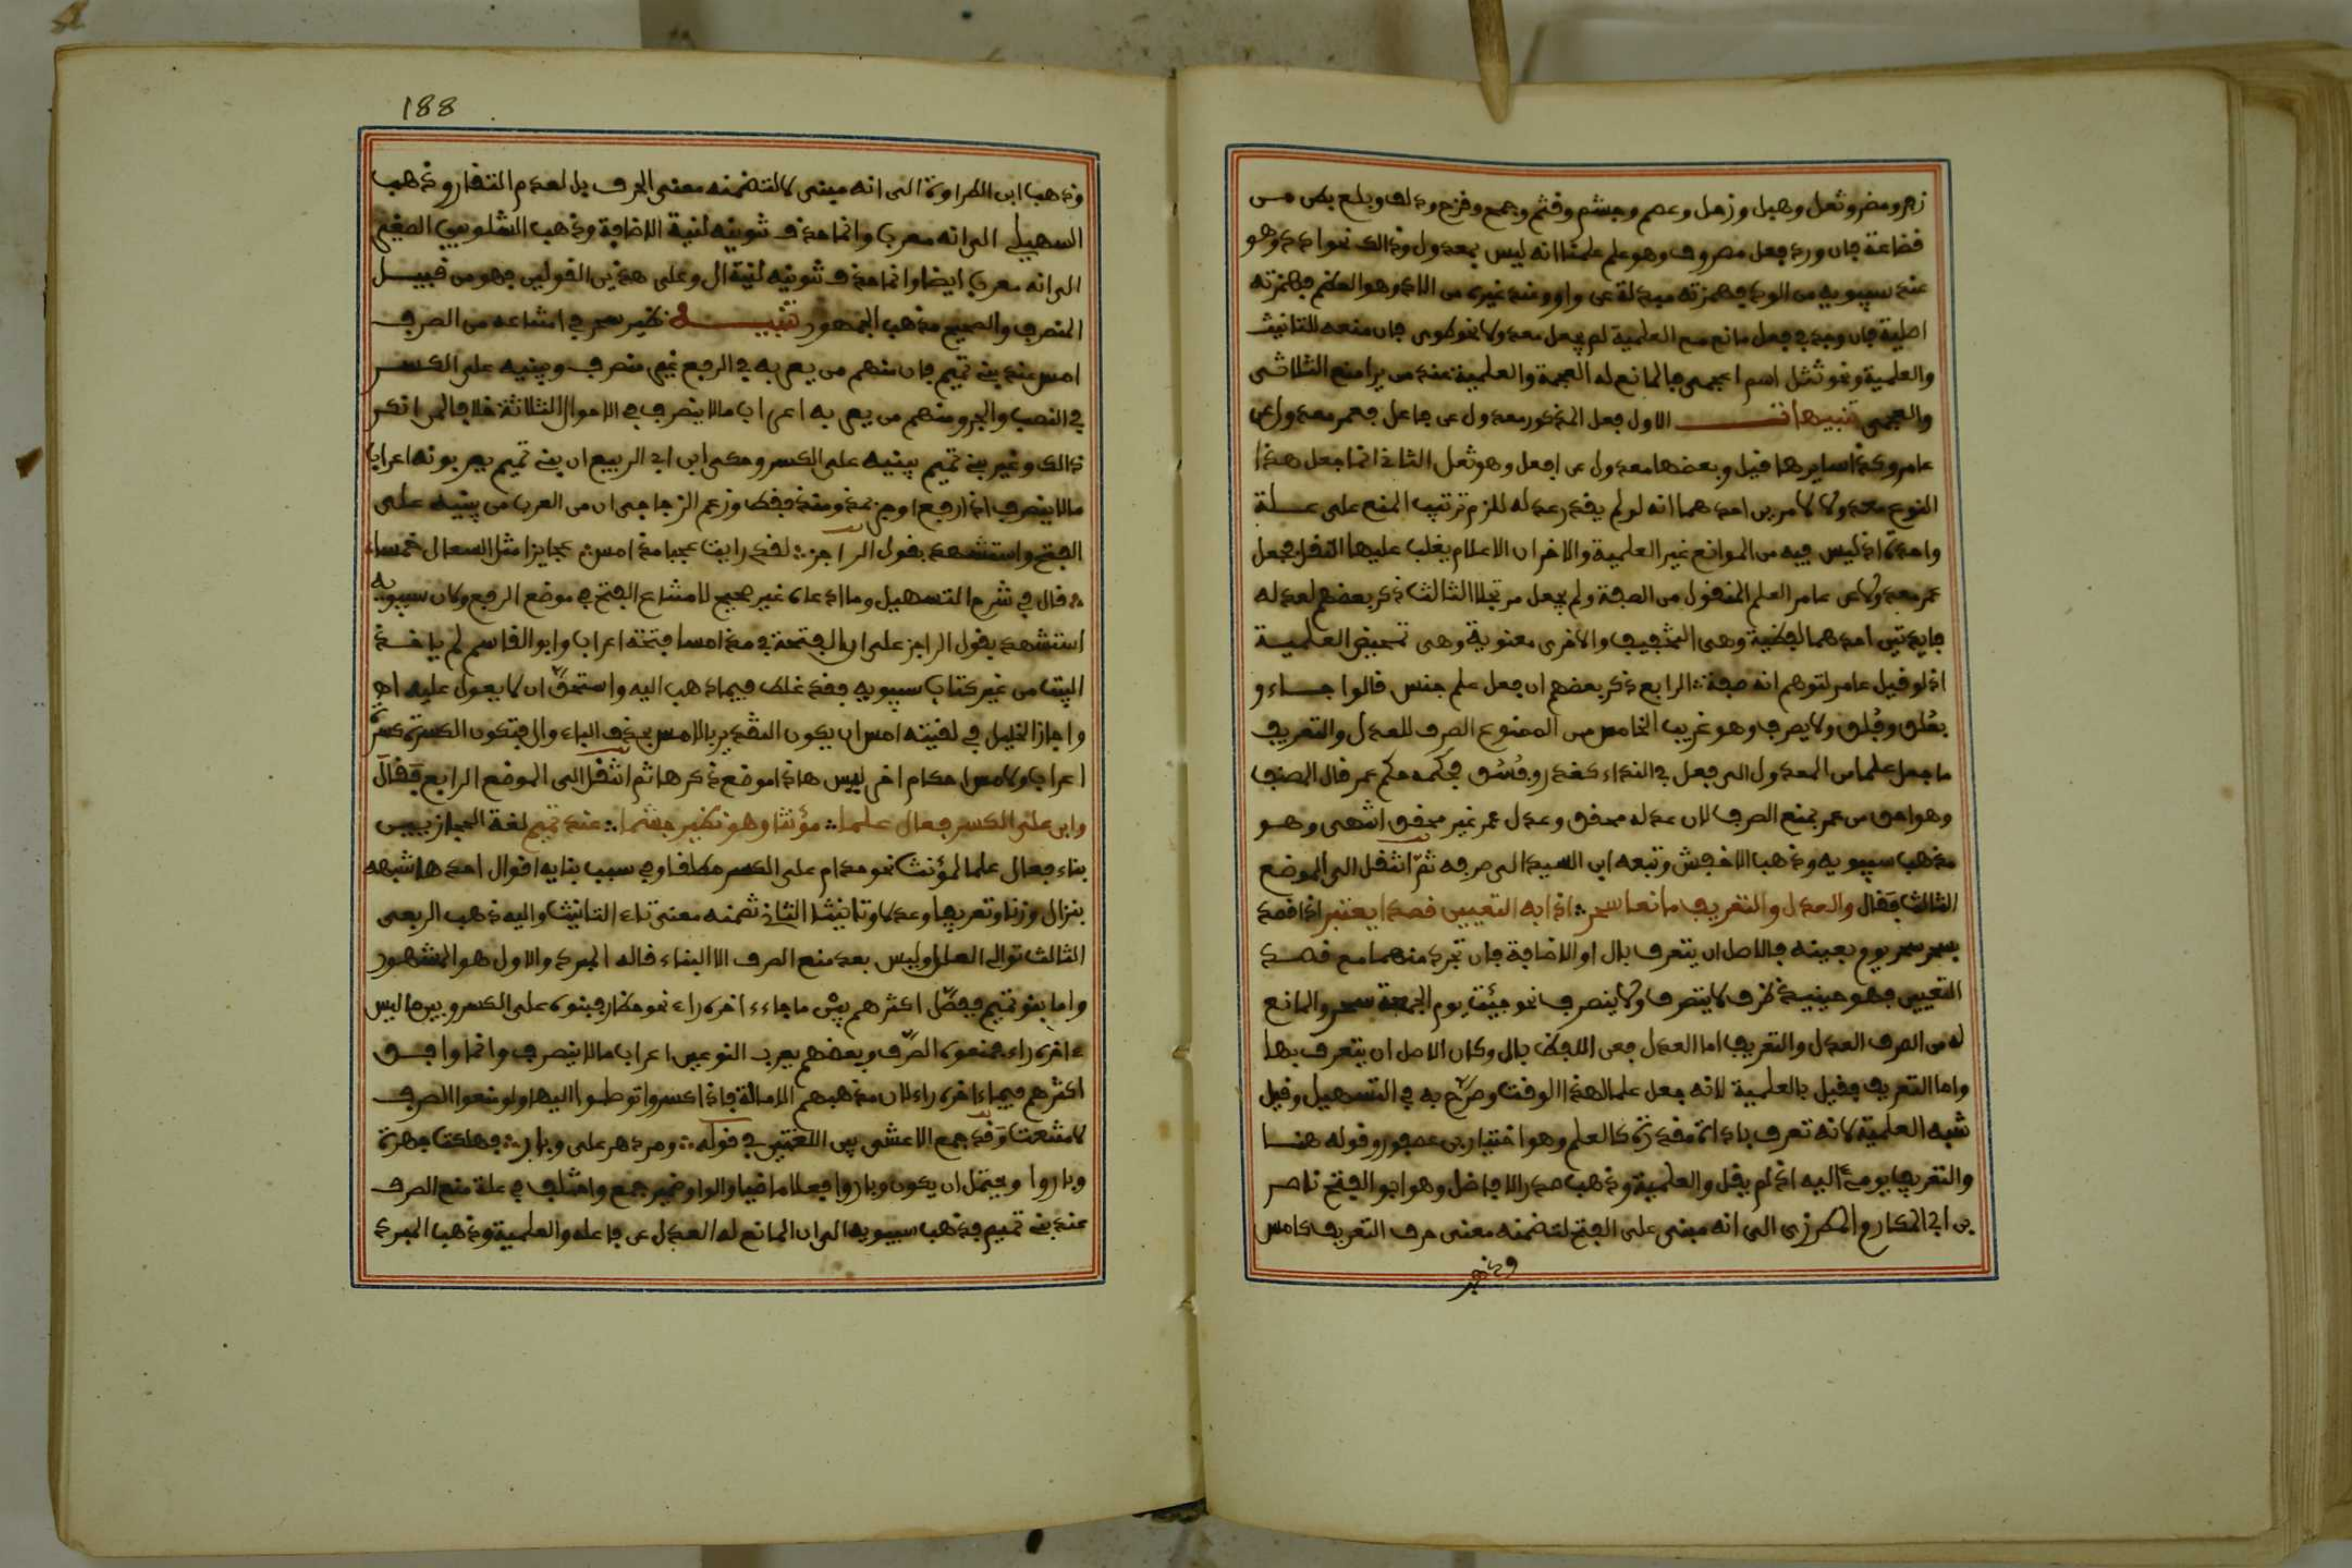 زفر ومضر وثعل وهبل وزحل وعصم وجشم وقثم وجمح وقزح ودلف وبلع بطن من
قضاعة فان ورد فعل مصروف وهو علم علمنا انه ليس بمعدول وذالك نحو ادد وهو
عند سيبويه من الود فهمزته مبدلة عن واو وعند غيره من الاد وهو العظيم فهمزته
اصلية فان وجد في فعل مانع مع العلمية لم يجعل معدولا نحو طوى فان منعه للتانيث
والعلمية ونحو تتل اسم اعجمي فالمانع له العجمة والعلمية عند من يرا منع الثلاثي
والعجمي تنبيهات الاول فعل المذكور معدول عن فاعل فعمر معدول عن
عامر وكذا سايرها قيل وبعضها معدول عن افعل وهو ثعل الثاني انما جعل هذا
النوع معدولا لامرين احدهما انه لو لم يقدر عدله للزم ترتيب المنع على علة
واحدة اذ ليس فيه من الموانع غير العلمية والاخر ان الاعلام يغلب عليها النقل فجعل
عمر معدولا عن عامر العلم المنقول من الصفة ولم يجعل مرتجلا الثالث ذكر بعضهم لعدله
فايدتين احدهما لفظية وهي التخفيف والاخرى معنوية وهي تمحيض العلمية
اذ لو قيل عامر لتوهم انه صفة الرابع ذكر بعضهم ان فعل علم جنس قالوا جاء و
بعلق وفلق ولا يصرف وهو غريب الخامس من الممنوع الصرف للعدل والتعريف
ما جعل علما من المعدول الى فعل في النداء كغدر وفسق فحكمه حكم عمر قال المصنف
وهو احق من عمر بمنع الصرف لان عدله محقق وعدل عمر غير محقق انتهى وهو
مذهب سيبويه وذهب الاخفش وتبعه ابن السيد الى صرفه ثم انتقل الى الموضع
الثالث فقال والعدل والتعريف مانعا سحر اذا به التعيين قصدا يعتبر اذا قصد
بسحر سحر يوم بعينه فالاصل ان يتعرف بال او الاضافة فان تجرد منهما مع قصد
التعيين فهو حينيذ ظرف لا يتصرف ولا ينصرف نحو جئت يوم الجمعة سحر والمانع
له من الصرف العدل والتعريف اما العدل فعن اللفظ بال وكان الاصل ان يتعرف بها
واما التعريف فقيل بالعلمية لانه جعل علما لهذا الوقت وصرح به في التسهيل وقيل
شبه العلمية لانه تعرف باداة مقدرة كالعلم وهو اختيار بن عصفور وقوله هنا
والتعريف يومئ اليه اذ لم يقل والعلمية وذهب صدر الافاضل وهو ابو الفتح ناصر
بن ابي المكارم المطرزي الى انه مبنى على الفتح لتضمنه معنى حرف التعريف كامس
وذهب
188
وذهب ابن الطراوة الى انه مبنى لا لتضمنه معنى الحرف بل لعدم التقار وذهب
السهيلي الى انه معرب وانما حذف تنوينه لنية الاضافة وذهب الشلوبين الصغير
الى انه معرب ايضا وانما حذف تنوينه لنية ال وعلى هذين القولين فهو من قبيل
المنصرف والصحيح مذهب الجمهور تنبيه نظير سحر في امتناعه من الصرف
امس عند بني تميم فان منهم من يعربه في الرفع غير منصرف ويبنيه على الكسر
في النصب والجر ومنهم من يعربه اعراب مالا ينصرف في الاحوال الثلاثة خلافا لمن انكر
ذالك وغير بني تميم يبنيه على الكسر وحكى ابن ابي الربيع ان بني تميم يعربونه اعراب
مالا ينصرف اذا رفع او جر بمذ ومنذ فقط وزعم الزجاجي ان من العرب من يبنيه على
الفتح واستشهد بقول الراجز لقد رايت عجبا مذ امسا عجايزا مثل السعالى خمسا
قال في شرح التسهيل وما ادعاه غير صحيح لامتناع الفتح في موضع الرفع ولان سيبويه
استشهد بقول الراجز على ان الفتحة في مذ امسا فتحة اعراب وابو القاسم لم ياخذ
البيت من غير كتاب سيبويه فقد غلط فيما ذهب اليه واستحق ان لا يعول عليه اه
واجاز الخليل في لقيته امس ان يكون التقدير بالامس بحذف الباء وال فتكون الكسرة كسرة
اعراب ولامس احكام اخر ليس هاذا موضع ذكرها ثم انتقل الى الموضع الرابع فقال
وابن على الكسر فعال علما مؤنثا وهو نظير جشما عند تميم لغة الحجازيين
بناء فعال علما لمؤنث نحو حذام على الكسر مطلقا وفي سبب بنايه اقوال احدها شبهه
بنزال وزنا وتعريفا وعدلا وتانيثا الثاني تضمنه معنى تاء التانيث واليه ذهب الربعى
الثالث توالي العلل وليس بعد منع الصرف الا البناء قاله المبرد والاول هو المشهور
واما بنو تميم ففصل اكثرهم بين ما جاء اخره راء نحو حظار فبنوه على الكسر وبين ما ليس
اخره راء فمنعوه الصرف وبعضهم يعرب النوعين اعراب مالا ينصرف وانما وافق
اكثرهم فيما اخره راء لان مذهبهم الامالة فاذا كسروا توصلوا اليها ولو منعوا الصرف
لامتنعت وقد جمع الاعشى بين اللغتين في قوله ومر دهر على وبار فهلكت جهرة
وبار وا ويحتمل ان يكون وباروا فعلا ماضيا والواو ضمير جمع واختلف في علة منع الصرف
عند بني تميم فذهب سيبويه الى ان المانع له العدل عن فاعله والعلمية وذهب المبرد